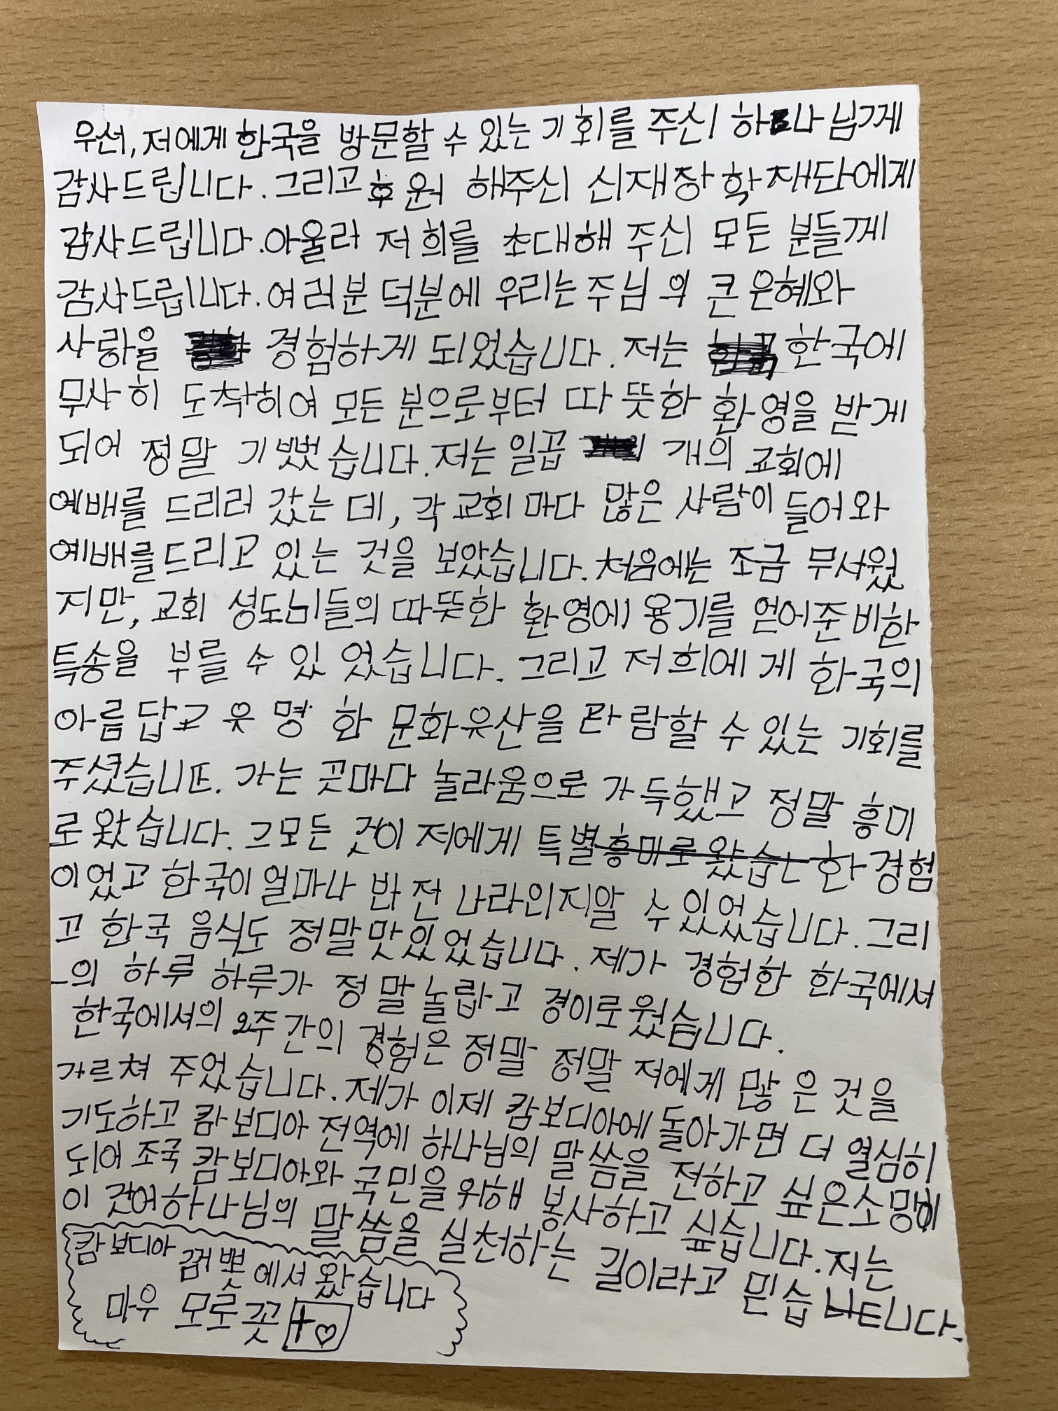 우선, 저에게 한국을 방문할 수 있는 기회를 주신 하나님께
감사드립니다. 그리고 후원 해주신 신재장학재단에게
감사드립니다. 아울러 저희를 초대해 주신 모든 분들께
감사드립니다. 여러분 덕분에 우리는 주님의 큰 은혜와
사랑을 경험하게 되었습니다. 저는 한국에
무사히 도착히여 모든 분으로부터 따뜻한 환영을 받게
되어 정말 기뻤습니다. 저는 일곱 개의 교회에
예배를 드리러 갔는데, 각 교회마다 많은 사람이 들어와
예배를 드리고 있는 것을 보았습니다. 처음에는 조금 무서웠
지만, 교회 성도님들의 따뜻한 환영에 용기를 얻어 준비한
특송을 부를 수 있었습니다. 그리고 저희에게 한국의
아름답고 유명한 문화유산을 관람할 수 있는 기회를
주셨습니다. 가는 곳마다 놀라움으로 가득했고 정말 흥미
로왔습니다. 그 모든 것이 저에게 특별흥미로왔습ㄴ한 경험
이었고 한국이 얼마나 발전 나라인지 알 수 있었습니다. 그리
고 한국 음식도 정말 맛있었습니다. 제가 경험한 한국에서
의 하루 하루가 정말 놀랍고 경이로웠습니다.
한국에서의 2주간의 경험은 정말 정말 저에게 많은 것을
가르쳐 주었습니다. 제가 이제 캄보디아에 돌아가면 더 열심히
기도하고 캄보디아 전역에 하나님의 말씀을 전하고 싶은 소망이
되어 조국 캄보디아와 국민을 위해 봉사하고 싶습니다. 저는
이 것여하나님의 말씀을 실천하는 길이라고 믿습니다.
캄보디아 껌뽓에서 왔습니다
마우 모로꽃